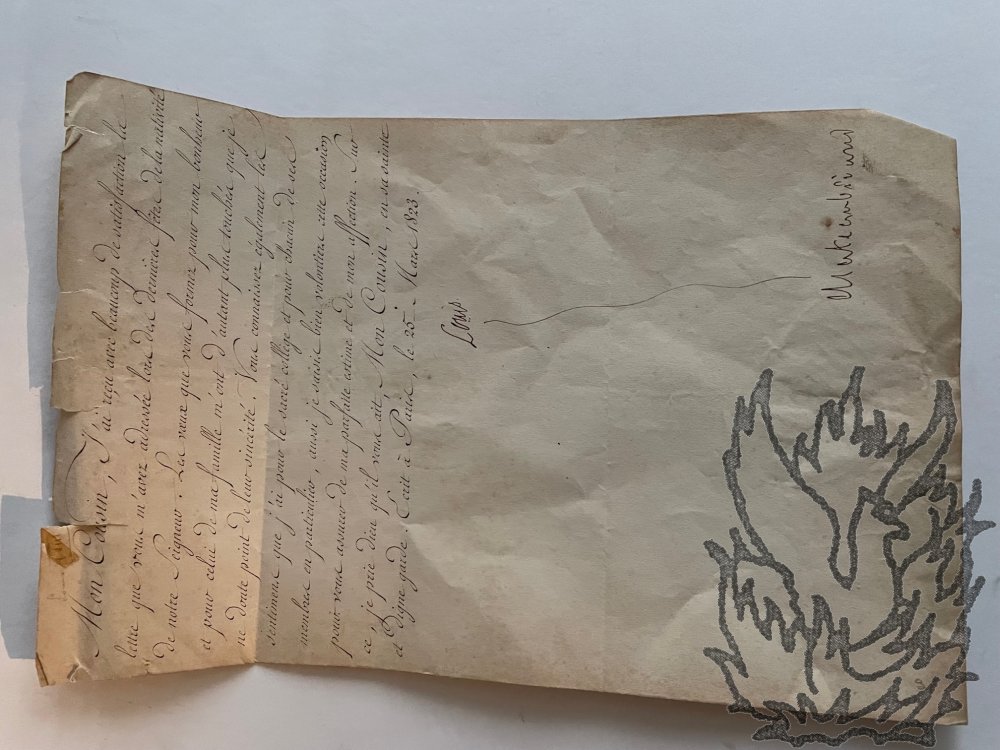 Mon Cousin, J'ai reçu avec beaucoup de satisfaction la
lettre que vous m'avez adressée lors des dernières fêtes de la nativité
de notre Seigneur. Les vœux que vous formez pour mon bonheur
et pour celui de ma famille m'ont d'autant plus touchée que je
ne doute point de leur sincérité. Vous connaissez également les
sentimens que j'ai pour le sacré collège et pour chacun de ses
membres en particulier, aussi je saisis bien volontiers une occasion
pour vous assurer de ma parfaite estime et de mon affection. Sur
ce, je prie Dieu qu'il vous ait, Mon Cousin, en sa sainte
et digne garde. Ecrit à Paris, le 25 Mars 1823.
Louis